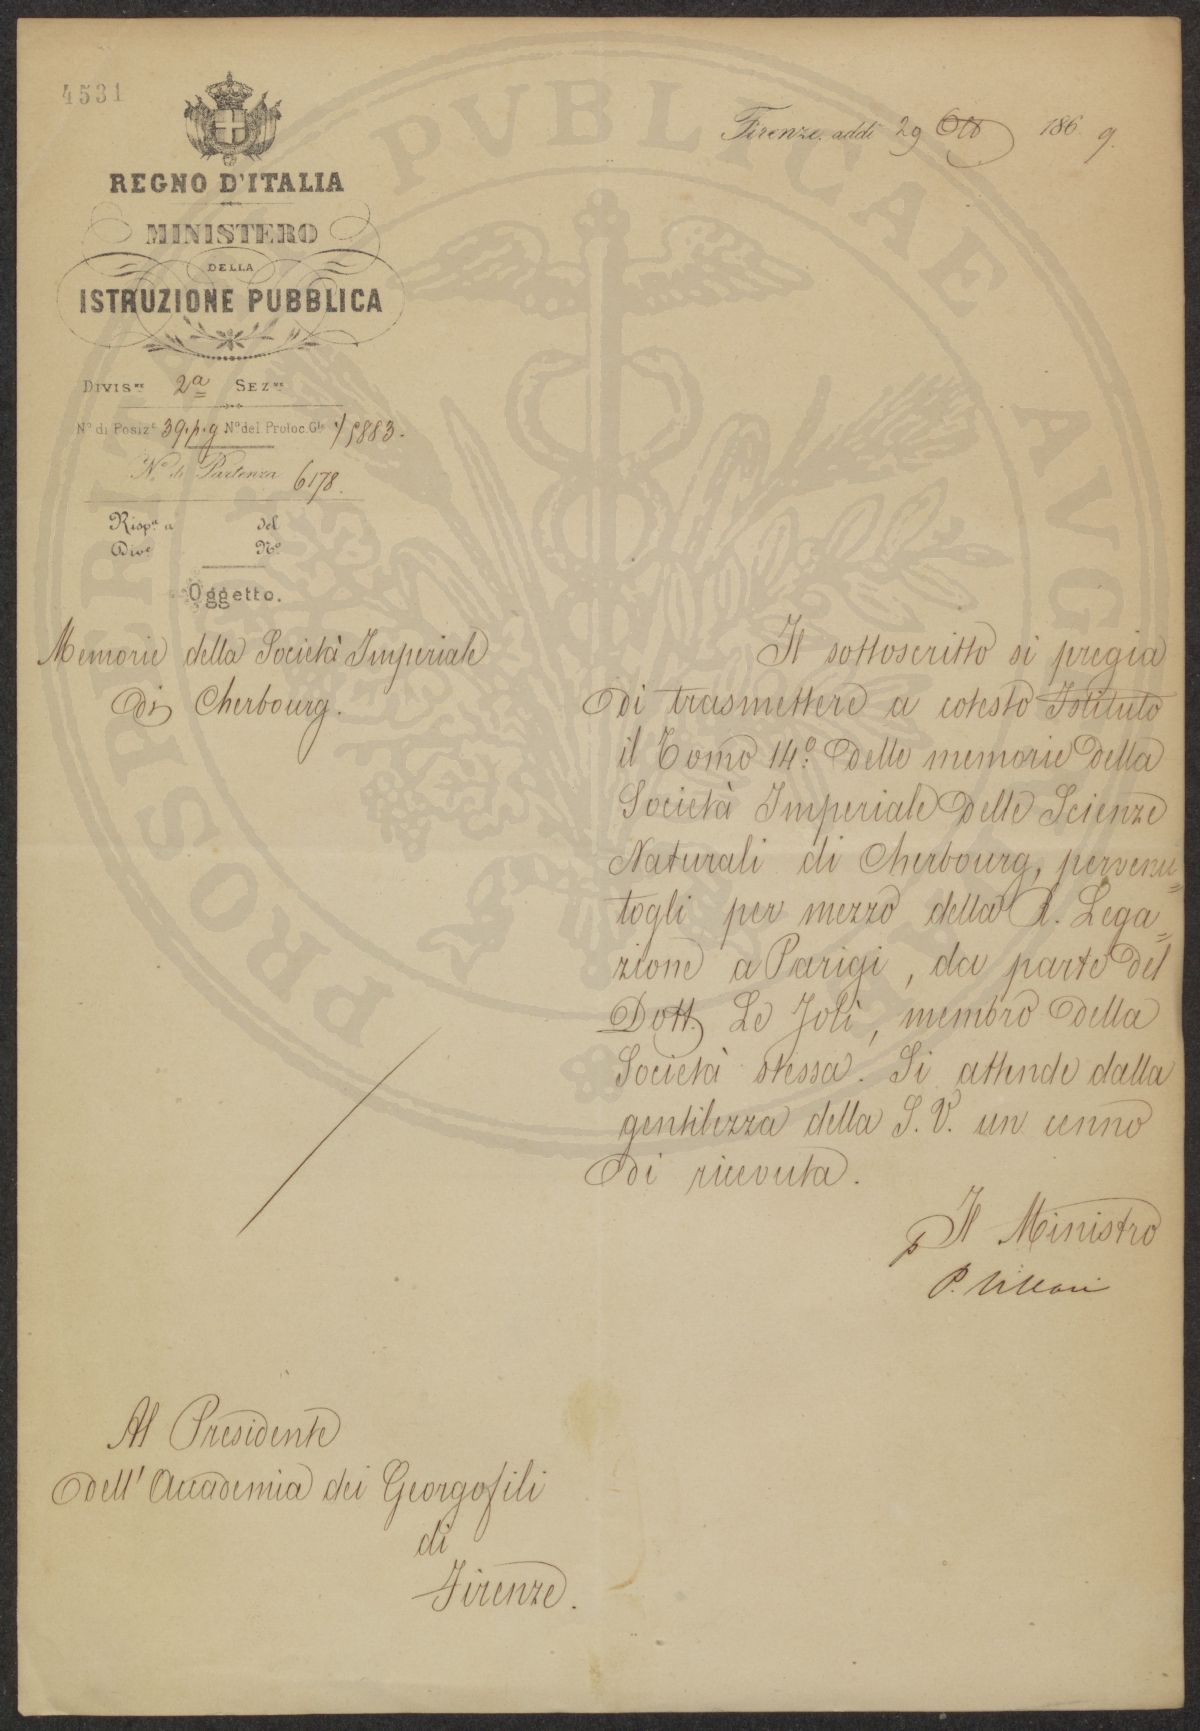 4531
Firenze, addì 29 Otto 1869.
REGNO D'ITALIA
MINISTERO
DELLA
ISTRUZIONE PUBBLICA
Divis.ne 2a Sez.ne
N.o di Posiz.e 39.p.g N.o del Protoc. G.le 15883.
N.o di Partenza 6178.
Risp.ta a del
Div.e N.o
Oggetto.
Memorie della Società Imperiale
di Cherbourg.
Il sottoscritto si pregia
di trasmettere a cotesto Istituto
il Tomo 14.o delle memorie della
Società Imperiale delle Scienze
Naturali di Cherbourg, pervenu=
togli per mezzo della R. Lega=
zione a Parigi, da parte del
Dott. Le Joli, membro della
Società stessa. Si attende dalla
gentilezza della S. V. un cenno
di ricevuta.
p Il Ministro
P. Villari
Al Presidente
dell'Accademia dei Georgofili
di
Firenze.
PROSPERITATI PVBLICAE AVGENDAE